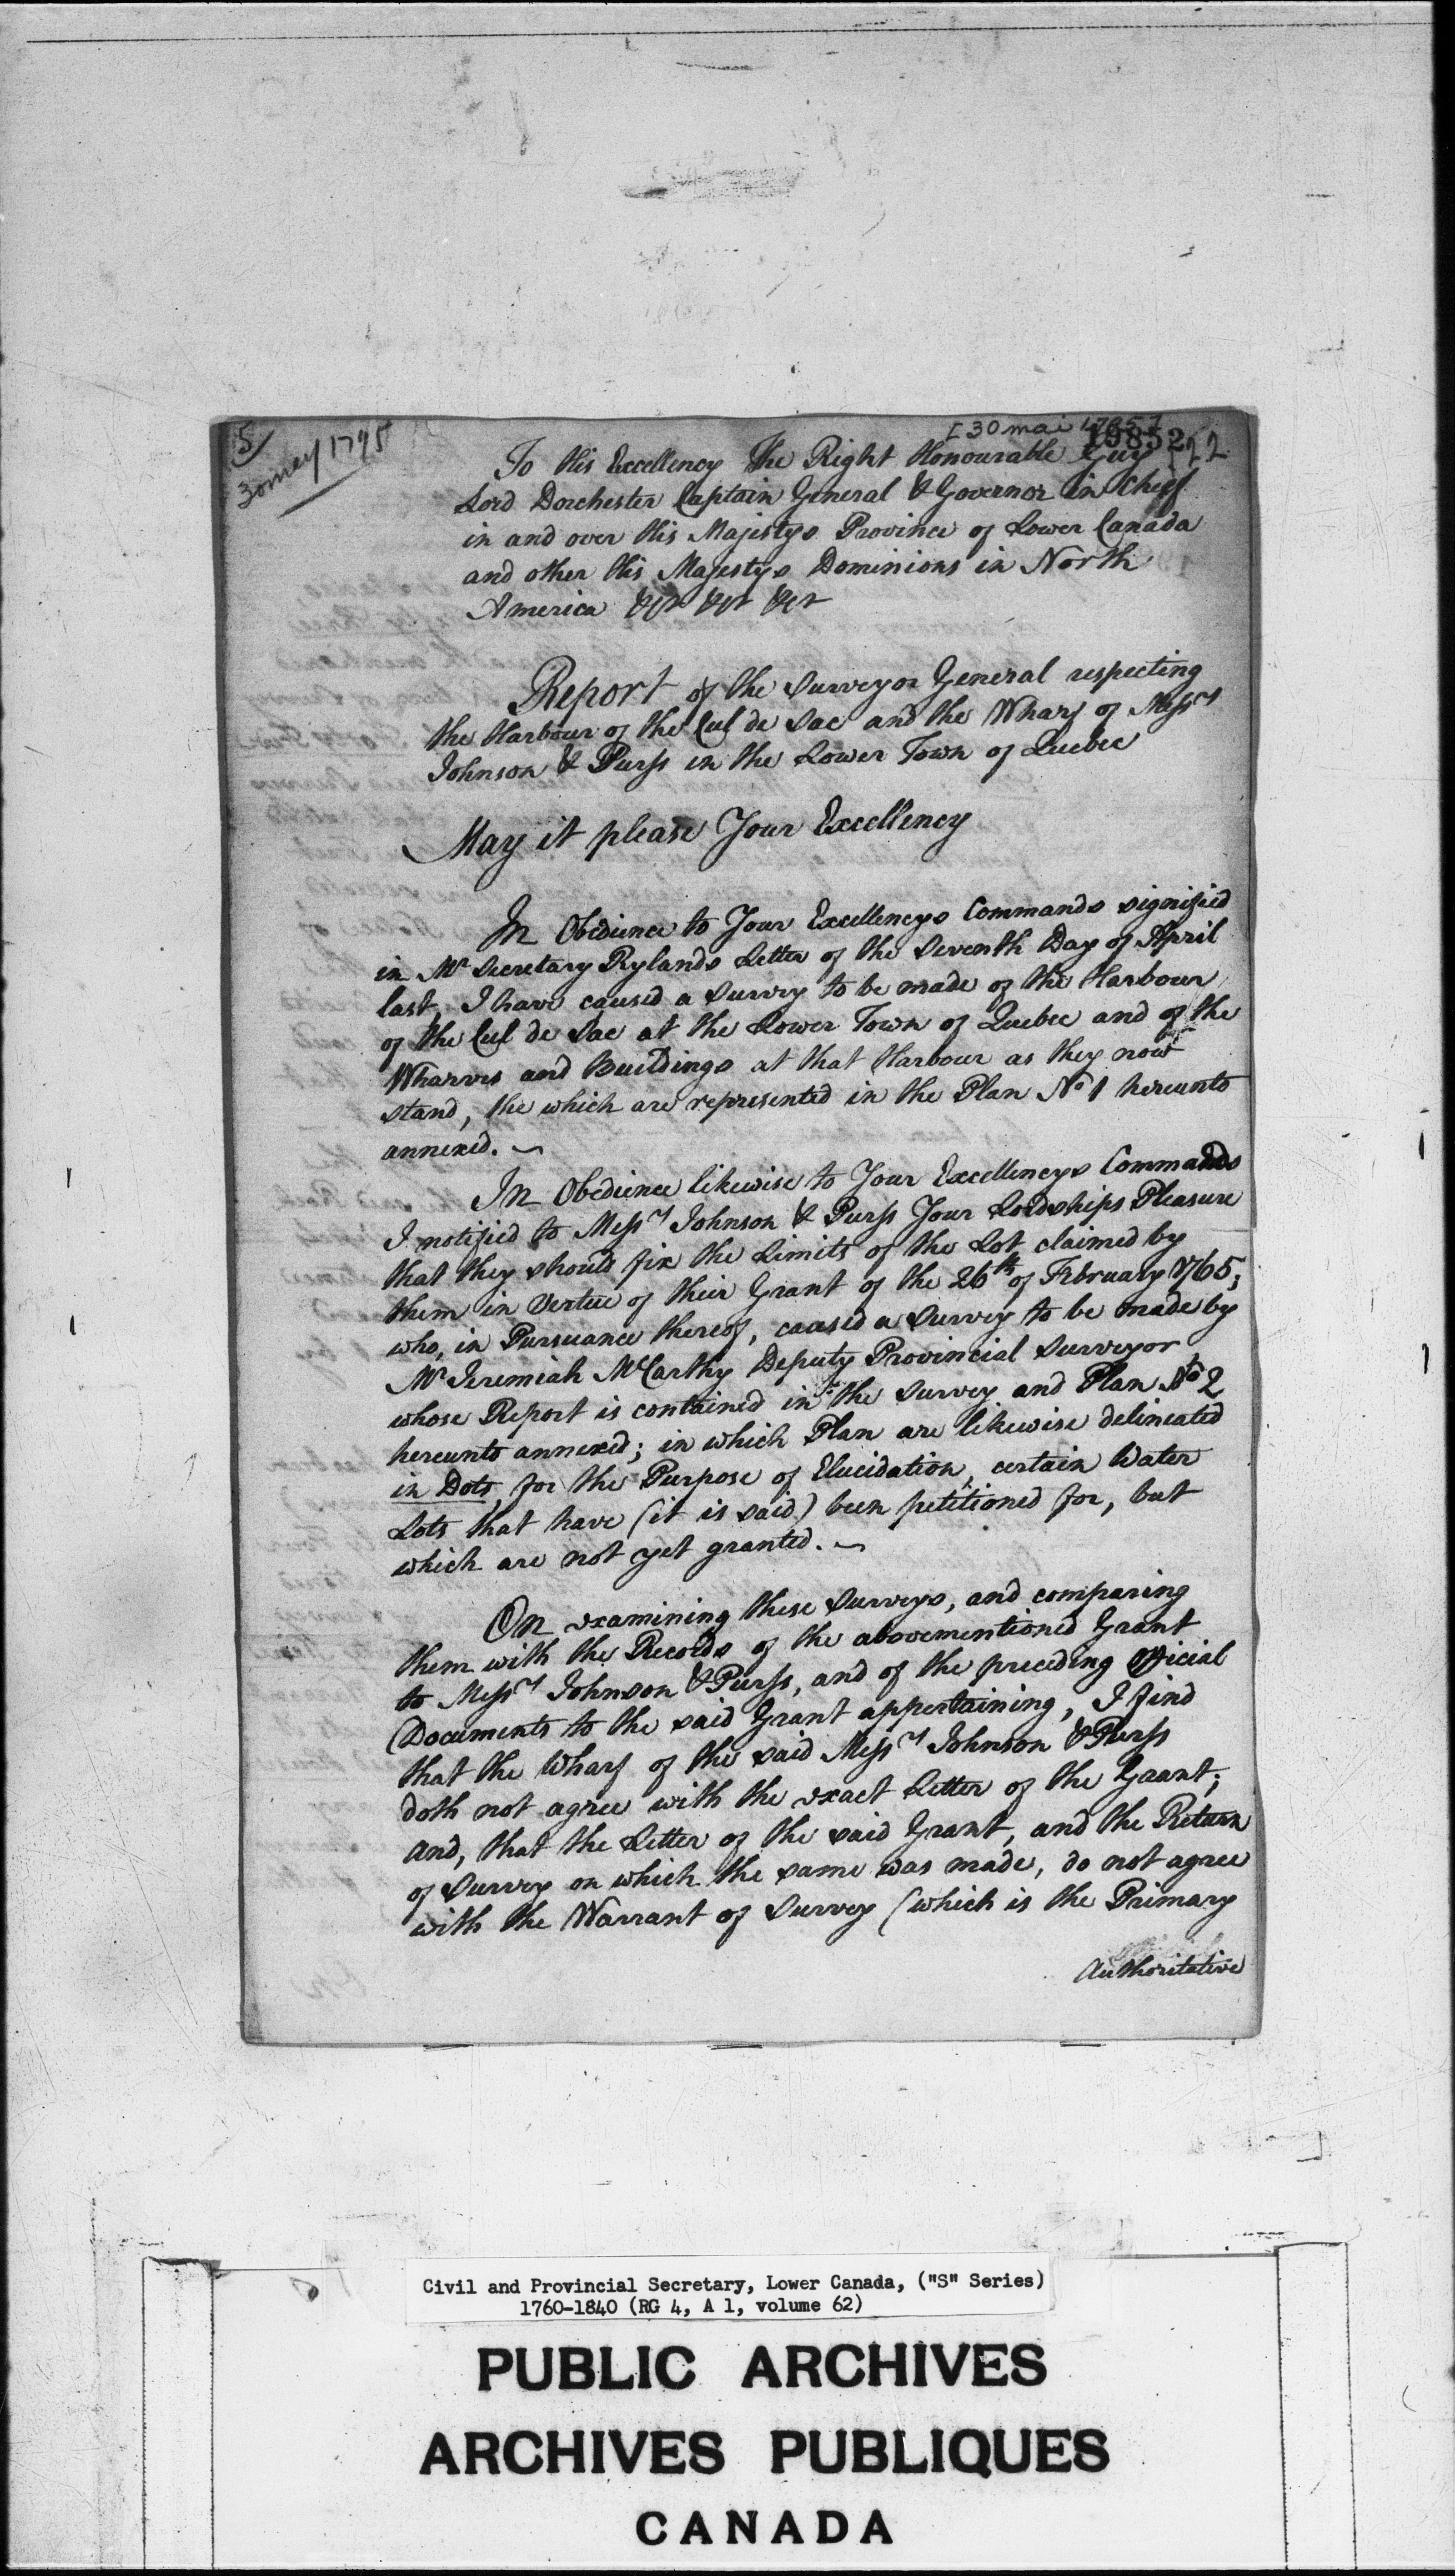 5/
30 may 1795
[30 mai 1795]
19852
To His Excellency The Right Honourable Guy
Lord Dorchester Captain General & Governor in Chief
in and over His Majestys Province of Lower Canada
and other His Majestys Dominions in North
America &ct &ct &ct
Report of the Surveyor General respecting
the Harbour of the Cul de Sac and the Wharf of Messrs
Johnson & Purss in the Lower Town of Quebec
May it please Your Excellency
In Obedience to Your Excellencys Commands signified
in Mr Secretary Rylands Letter of the Seventh Day of April
last, I have caused a Survey to be made of the Harbour
of the Cul de Sac at the Lower Town of Quebec and of the
Wharves and Buildings at that Harbour as they now
stand, the which are represented in the Plan No 1 hereunto
annexed.
In Obedience likewise to Your Excellencys Commands
I notified to Messrs Johnson & Purss Your Lordships Pleasure
that they should fix the Limits of the Lot claimed by
them in Vertue of their Grant of the 26th of February 1765;
who, in Pursuance thereof, caused a Survey to be made by
Mr Jeremiah McCarthy Deputy Provincial Surveyor
whose Report is contained in the Survey and Plan No 2
hereunto annexed; in which Plan are likewise delineated
in Dots, for the Purpose of Elucidation, certain Water
Lots that have (it is said) been petitioned for, but
which are not yet granted.
On examining these Surveys, and comparing
them with the Records of the abovementioned Grant
to Messrs Johnson & Purss, and of the preceding Official
Documents to the said Grant appertaining, I find
that the Wharf of the said Messrs Johnson & Purss
doth not agree with the exact Letter of the Grant;
and, that the Letter of the said Grant, and the Return
of Survey on which the same was made, do not agree
with the Warrant of Survey (which is the Primary
Authoritative
Civil and Provincial Secretary, Lower Canada, ("S" Series)
1760-1840 (RG 4, A 1, volume 62)
PUBLIC ARCHIVES
ARCHIVES PUBLIQUES
CANADA